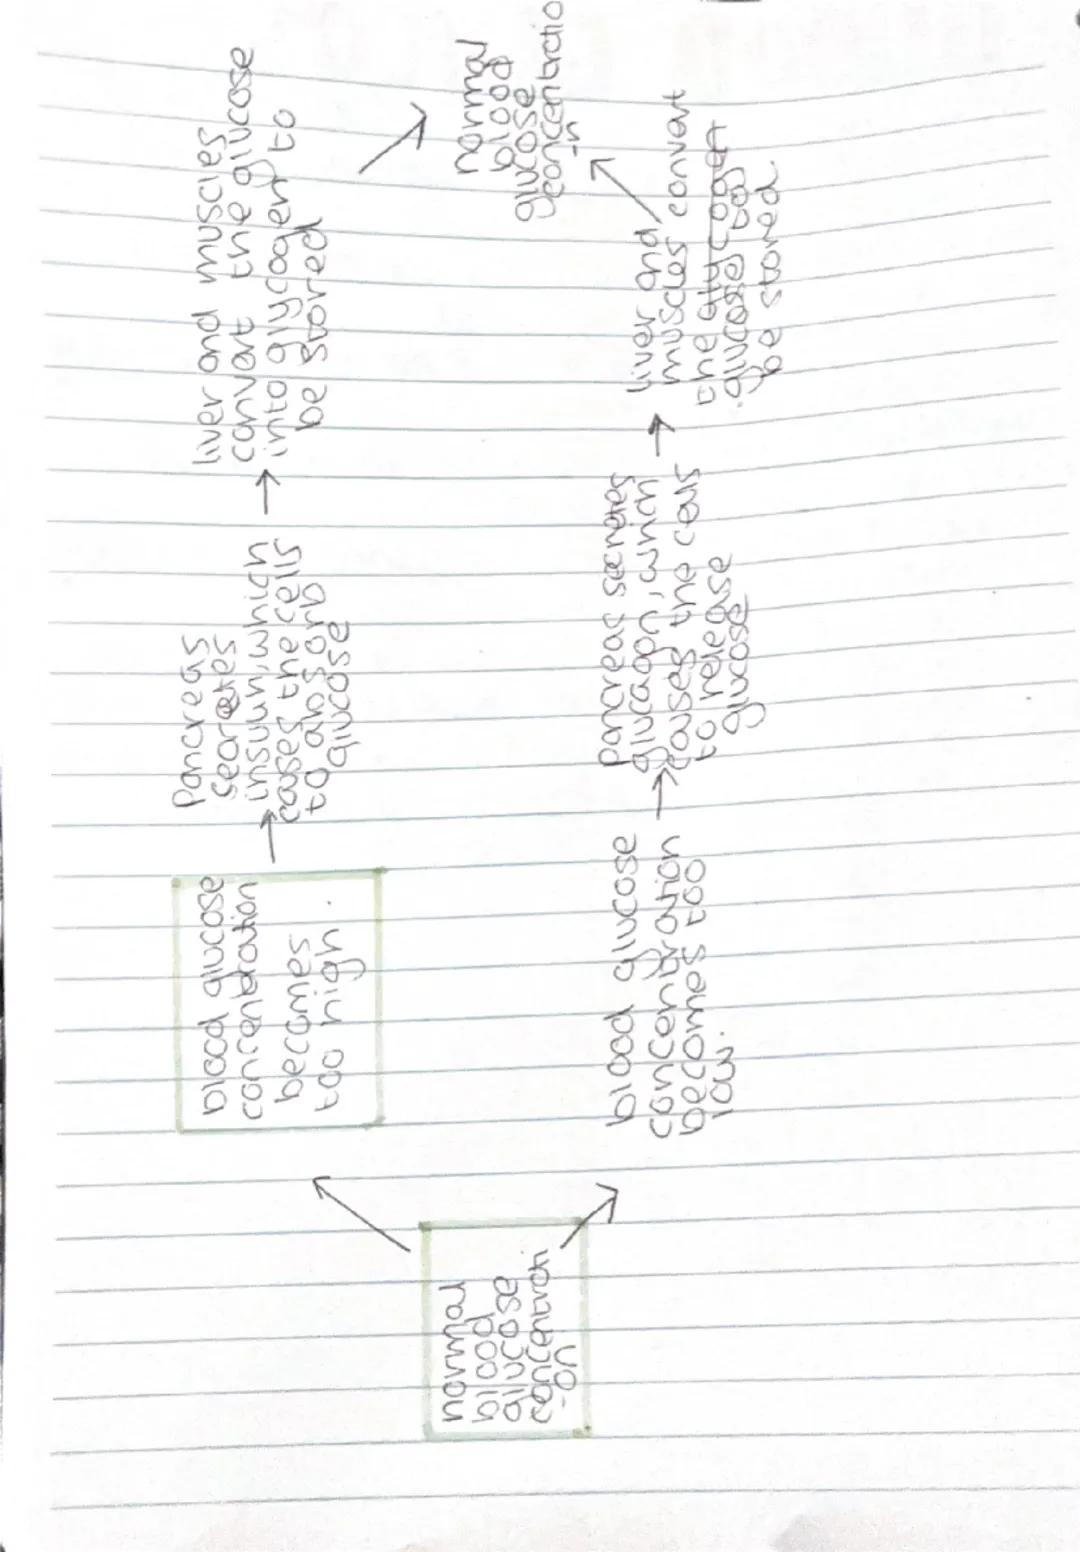 normal
blood
glucose
concentrati
-on
blood glucose
concentration
becomes
too high.
Pancreas
secretes
insulin, which
causes the cells
to absorb
glucose
liver and muscles
convert the glucose
into glycogen to
be stored
blood glucose
concentration
becomes too
low.
Pancreas secretes
glucagon, which
causes the cells
to release
glucose
liver and
muscles convert
the glycogen
glucose to
be stored.
normal
blood
glucose
concentratio
-n